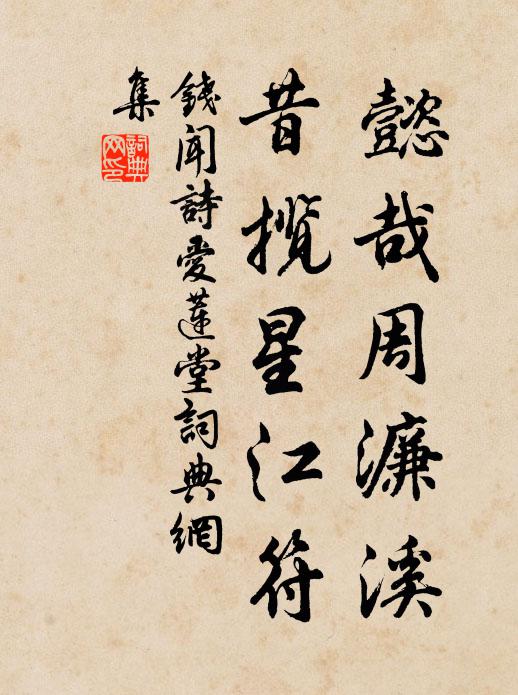 懿哉周濂溪
昔攬星江符
錢聞詩愛蓮堂詞典網
集
詞典
网印